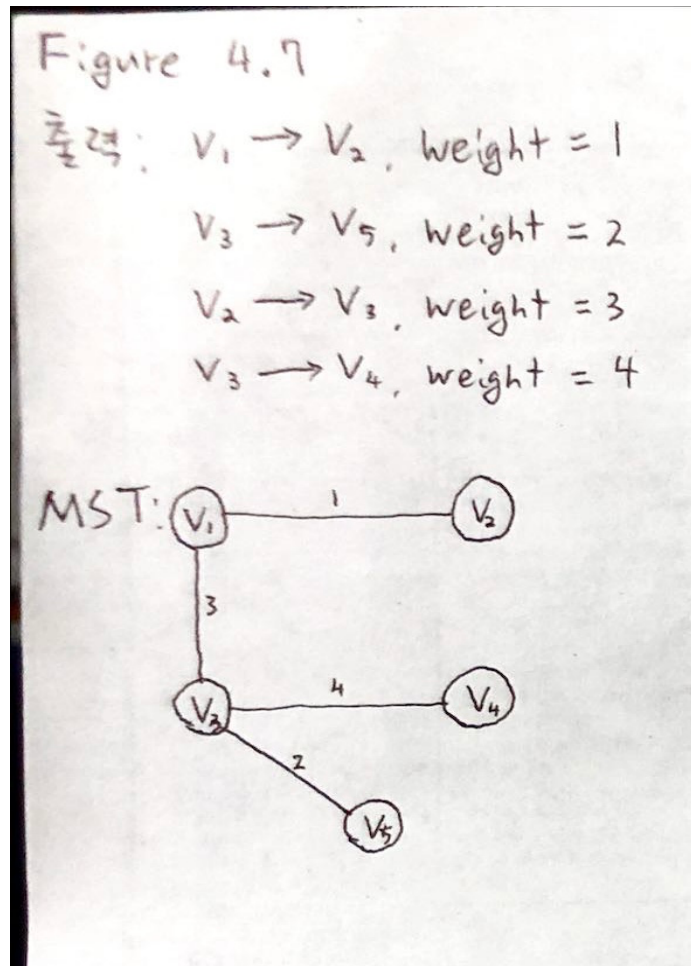 Figure 4.7
출력: V₁ → V₂, weight = 1
V₃ → V₅, weight = 2
V₂ → V₃, weight = 3
V₃ → V₄, weight = 4
MST: V₁ 1 V₂
3
V₃ 4 V₄
2
V₅